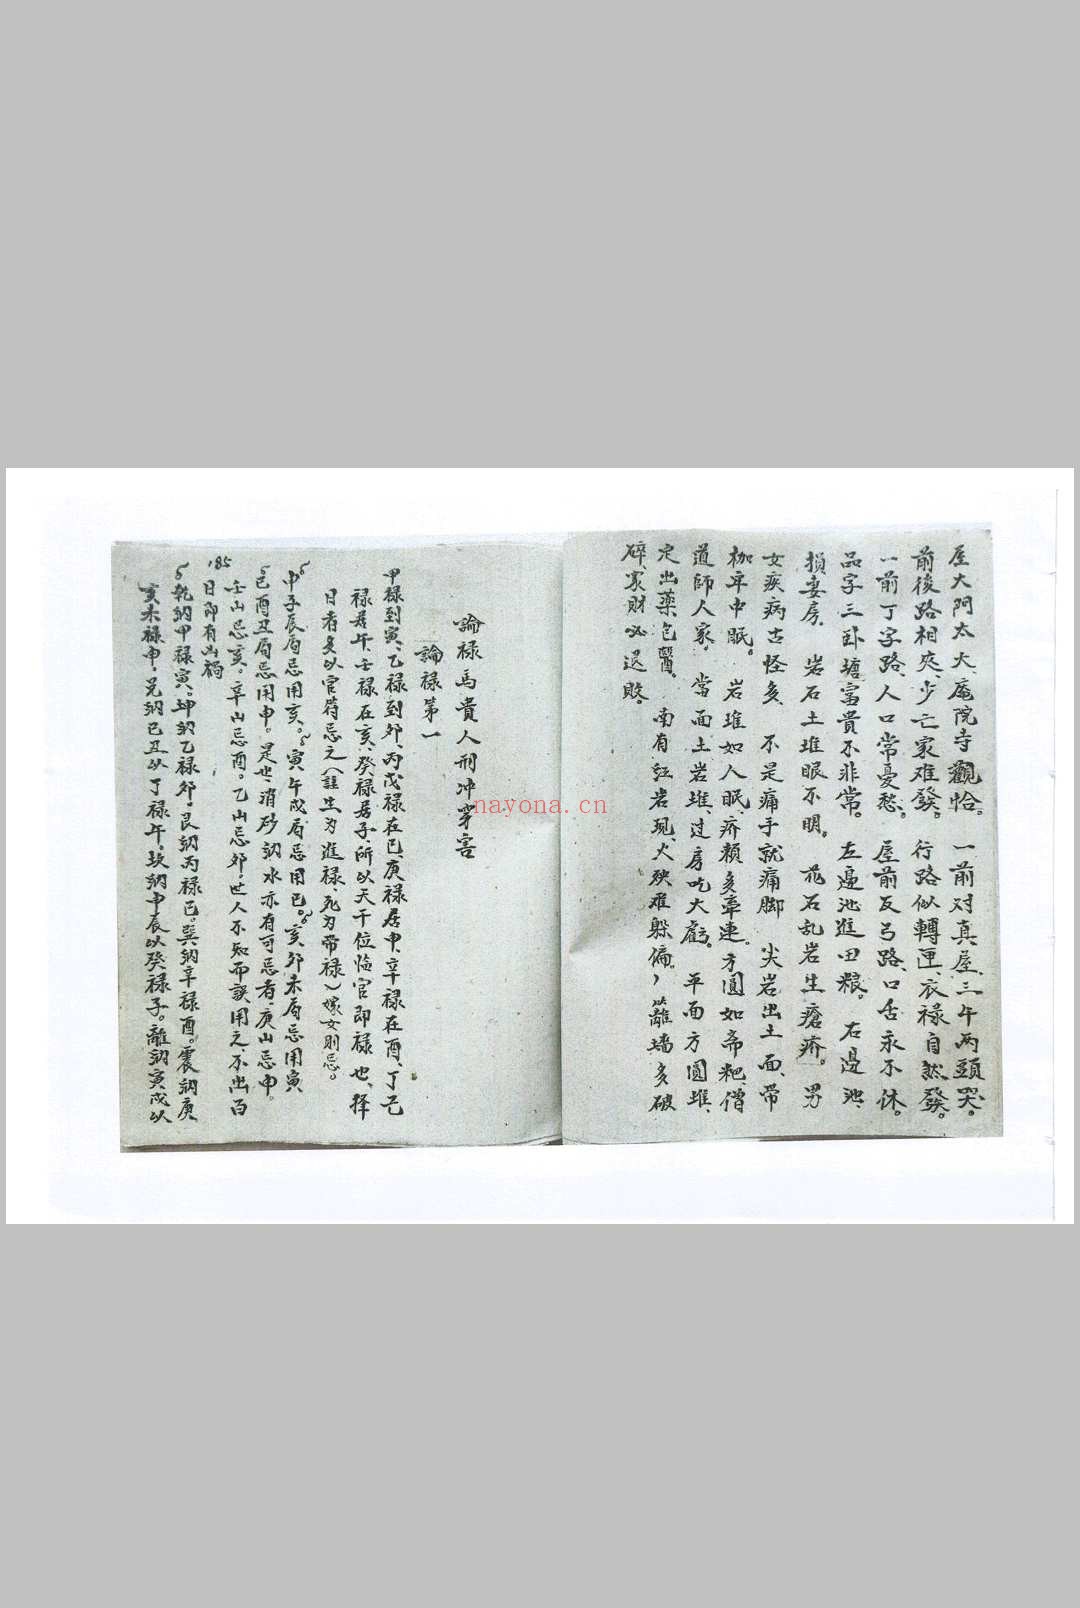 屋大門太大、庵院寺觀恰。一前对真屋、三年两頭哭。
前後路相夾、少亡家难發。行路似轉匣、衣禄自然發。
一前丁字路、人口常憂愁。屋前反弓路、口舌永不休。
品字三卧塘、富貴不非常。左邊池進田粮。右邊池
損妻房。岩石土堆眼不明。花石乱岩生瘡疥。男
女疾病古怪多、不是痛手就痛脚 尖岩出土面、带
枷牢中眠。岩堆如人眠、疥癩多牽連。方圓如斋粑、僧
道師人家。當面土岩堆、过房吃大虧。平面方圓堆、
定出藥包醫。南有红岩现、火殃难躲偏、籬墙多破
碎、家财必退敗。
論禄馬貴人刑冲穿害
論禄第一
甲禄到寅、乙禄到夘、丙戊禄在巳、庚禄居申、辛禄在酉、丁己
禄居午、壬禄在亥、癸禄居子、所以天干位临官即禄也、择
日者多以官符忌之（註生为進禄、死为带禄）嫁女則忌。
申子辰局忌用亥。寅午戌局忌用巳。亥夘未局忌用寅
巳酉丑局忌用申。是也、消砂納水亦有可忌者、庚山忌申。
壬山忌亥。辛山忌酉。乙山忌夘、世人不知而誤用之、不出百
日即有凶禍
85
乾納甲禄寅、坤納乙禄夘、艮納丙禄巳。巽納辛禄酉。震納庚
亥未禄申、兑納巳丑以丁禄午、坎納申辰以癸禄子。離納寅戌以
nayona.cn